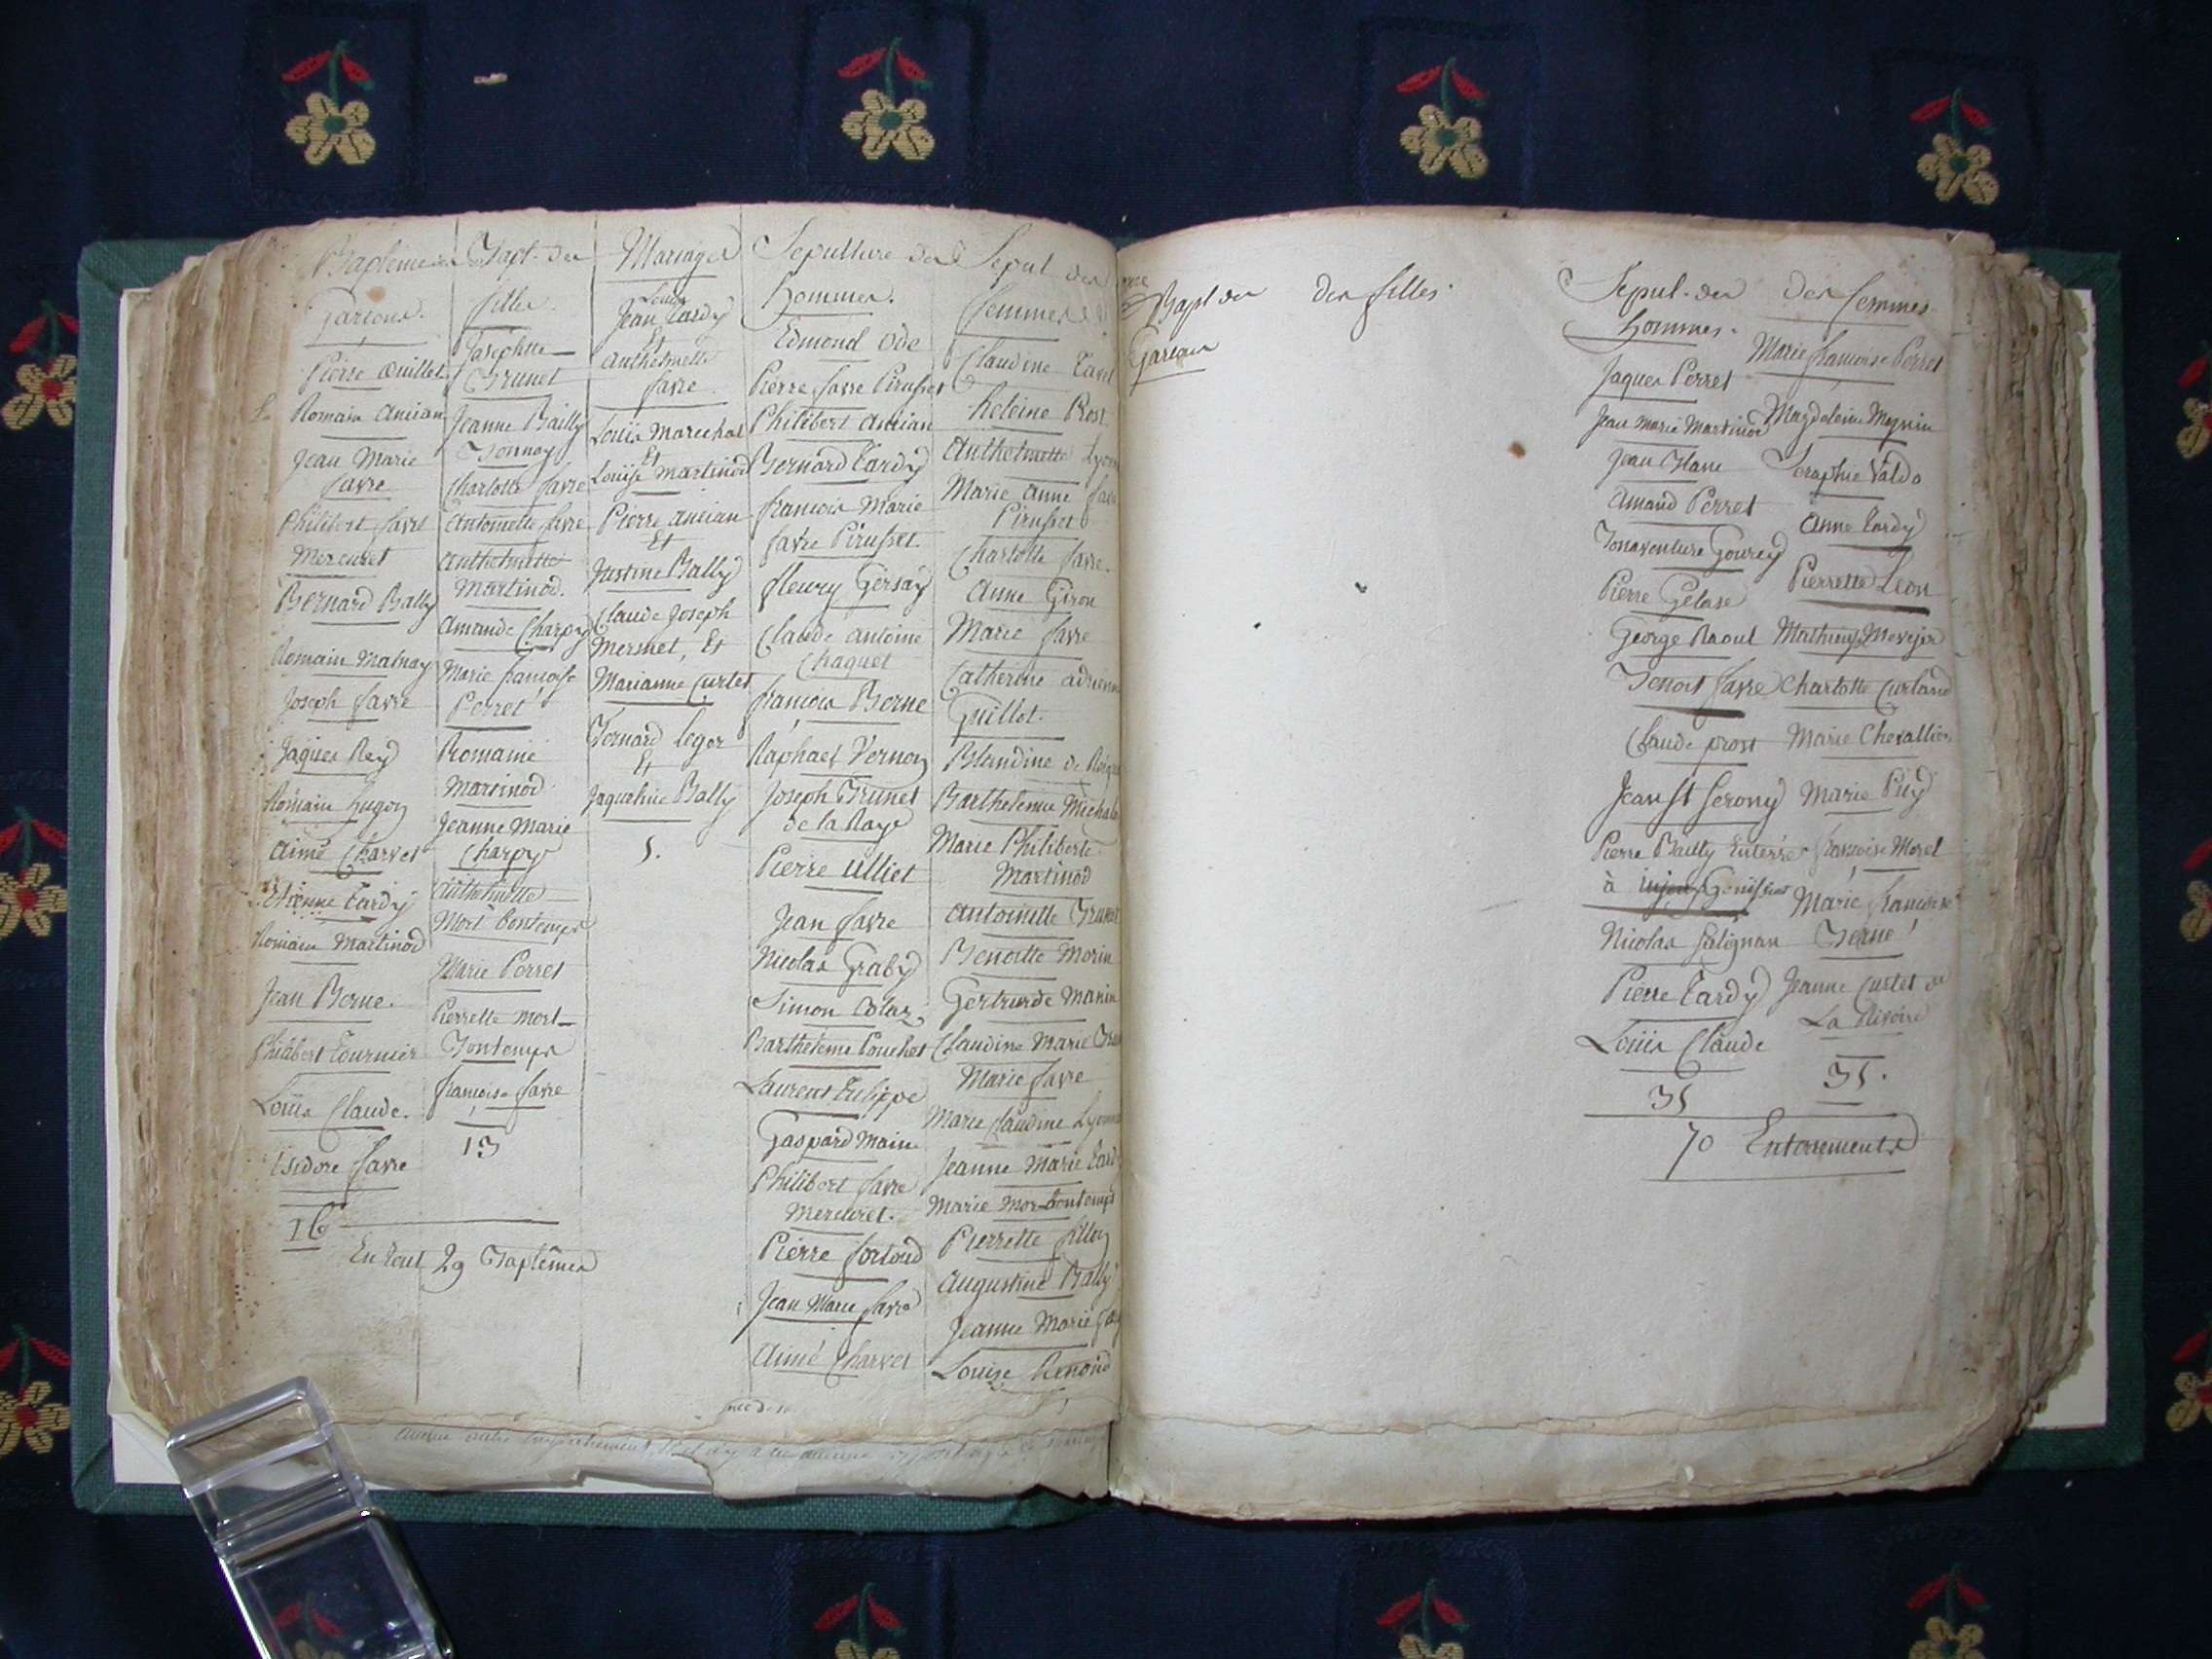 Baptêmes
Garçons.
Pierre
Romain Ancian
Jean Marie
favre
Philibert favre
Mercuret
Bernard Bally
Romain Malnay
Joseph favre
Jaques Rey
Romain hugon
Aimé Charvet
Etienne Tardy
Romain Martinod
Jean Berne.
Philibert Tournier
Loüis Claude.
Isidore favre
16
En tout 29 Baptêmes
Bapt. des
filles.
Josephtte
Brunet
Jeanne Bailly
Bonnay
Charlotte favre
Antoinette favre
Anthelmette
Martinod.
Amande Charpy
Marie françoise
Perret
Romaine
Martinod
Jeanne Marie
Charpy
Anthelmette
Mort bontemps
Marie Perret
Pierrette Mort
Bontemps
françoise favre
13
Mariages
Louis
Jean Tardy
Et
Anthelmette
favre
Loüis Marechal
Et
Loüise Martinod
Pierre Ancian
Et
Justine Bally
Claude Joseph
Mermet, Et
Marianne Curtet
Bernard leger
Et
Jaqueline Bally
5.
Sepulture des
hommes.
Edmond Ode
Pierre favre Pirusset
Philibert Ancian
Bernard Tardy
francois Marie
favre Pirusset.
fleury Gersay
Claude Antoine
Chaquet
francois Berne
Raphael Vernoy
Joseph Brunet
de la Raye
Pierre Ulliet
Jean favre
Nicolas Graby
Simon Colaz
Barthelemi Pouchet
Laurent Tulippe
Gaspard Main
Philibert favre
Mercuret.
Pierre fortoud
Jean Marie favre
Aimé Charvet
Sepul des
femmes
Claudine
heleine Rost
Anthelmette
Marie Anne
Pirusset
Charlotte favre.
Anne Giron
Marie favre
Catherine
Guillot.
Blandine de
Barthelemie
Marie Philiberte
Martinod
Antoinette
Benoitte Morin
Gertrurde Manin
Claudine Marie
Marie favre
Marie Claudine
Jeanne Marie
Marie Mor-bontemps
Pierrette fillon
Augustine Bally
Jeanne Marie
Louise Renoud
Bapt des
Garçons
des filles.
Sepul. des
hommes.
Jaques Perret
Jean Marie Martinod
Jean Blanc
Amand Perret
Bonaventure Gourey
Pierre Gelase
George Raoul
Benoit favre
Claude prost
Jean St
Pierre Bailly Enterré
à
Nicolas
Pierre Tardy
Loüis Claude
35
des femmes.
Marie françoise Perret
Magdeleine Magnin
Seraphie
Anne Tardy
Pierrette Leon
Charlotte Curtand
Marie Chevallier
Marie Puy
françoise Morel
Marie francoise
Berne
Jeanne Curtet de
La Rivoire
35.
70 Enterrements